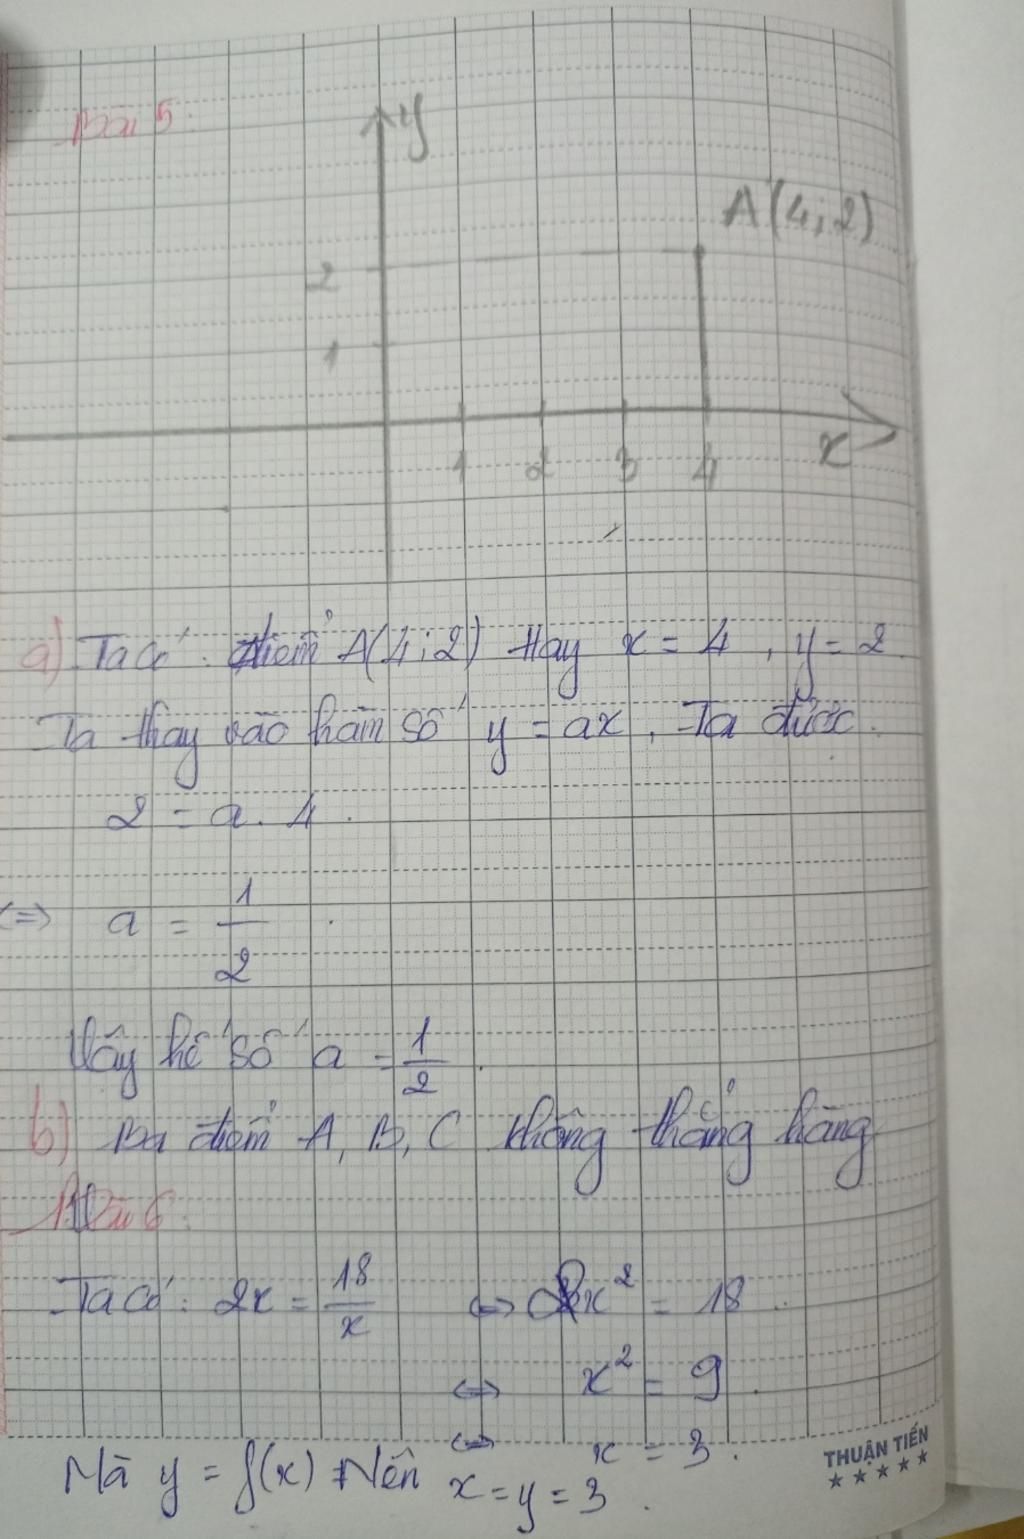 Bài 5:
y
A(4;2)
2
1
1 2 3 4 x
a) Ta có: điểm A(4;2) Hay x = 4, y = 2.
Ta thay vào hàm số y = ax, Ta được.
2 = a. 4.
<=> a = 1/2.
Vây hê số a = 1/2.
b) Ba điểm A, B, C không thẳng hàng
Bài 6:
Ta có: 2x = 18/x <=> 2x² = 18.
<=> x² = 9.
<=> x = 3.
Mà y = f(x) Nên x = y = 3.
THUẬN TIẾN